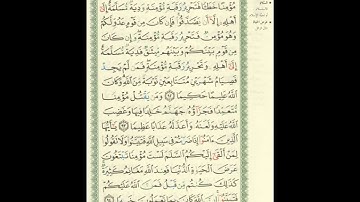 مُؤْمِنًا خَطَـًٔا فَتَحْرِيرُ رَقَبَةٍ مُّؤْمِنَةٍ وَدِيَةٌ مُّسَلَّمَةٌ إِلَىٰٓ
أَهْلِهِۦٓ إِلَّآ أَن يَصَّدَّقُوا۟ فَإِن كَانَ مِن قَوْمٍ عَدُوٍّ لَّكُمْ
وَهُوَ مُؤْمِنٌ فَتَحْرِيرُ رَقَبَةٍ مُّؤْمِنَةٍ وَإِن كَانَ
مِن قَوْمٍۭ بَيْنَكُمْ وَبَيْنَهُم مِّيثَـٰقٌ فَدِيَةٌ مُّسَلَّمَةٌ
إِلَىٰٓ أَهْلِهِۦ وَتَحْرِيرُ رَقَبَةٍ مُّؤْمِنَةٍ فَمَن لَّمْ يَجِدْ
فَصِيَامُ شَهْرَيْنِ مُتَتَابِعَيْنِ تَوْبَةً مِّنَ ٱللَّهِ وَكَانَ
ٱللَّهُ عَلِيمًا حَكِيمًا ٩٢ وَمَن يَقْتُلْ مُؤْمِنًا
مُّتَعَمِّدًا فَجَزَآؤُهُۥ جَهَنَّمُ خَـٰلِدًا فِيهَا وَغَضِبَ
ٱللَّهُ عَلَيْهِ وَلَعَنَهُۥ وَأَعَدَّ لَهُۥ عَذَابًا عَظِيمًا ٩٣ يَـٰٓأَيُّهَا
ٱلَّذِينَ ءَامَنُوٓا۟ إِذَا ضَرَبْتُمْ فِى سَبِيلِ ٱللَّهِ فَتَبَيَّنُوا۟ وَلَا تَقُولُوا۟
لِمَنْ أَلْقَىٰٓ إِلَيْكُمُ ٱلسَّلَـٰمَ لَسْتَ مُؤْمِنًا تَبْتَغُونَ
عَرَضَ ٱلْحَيَوٰةِ ٱلدُّنْيَا فَعِندَ ٱللَّهِ مَغَانِمُ كَثِيرَةٌ
كَذَٰلِكَ كُنتُم مِّن قَبْلُ فَمَنَّ ٱللَّهُ عَلَيْكُمْ
فَتَبَيَّنُوٓا۟ إِنَّ ٱللَّهَ كَانَ بِمَا تَعْمَلُونَ خَبِيرًا ٩٤